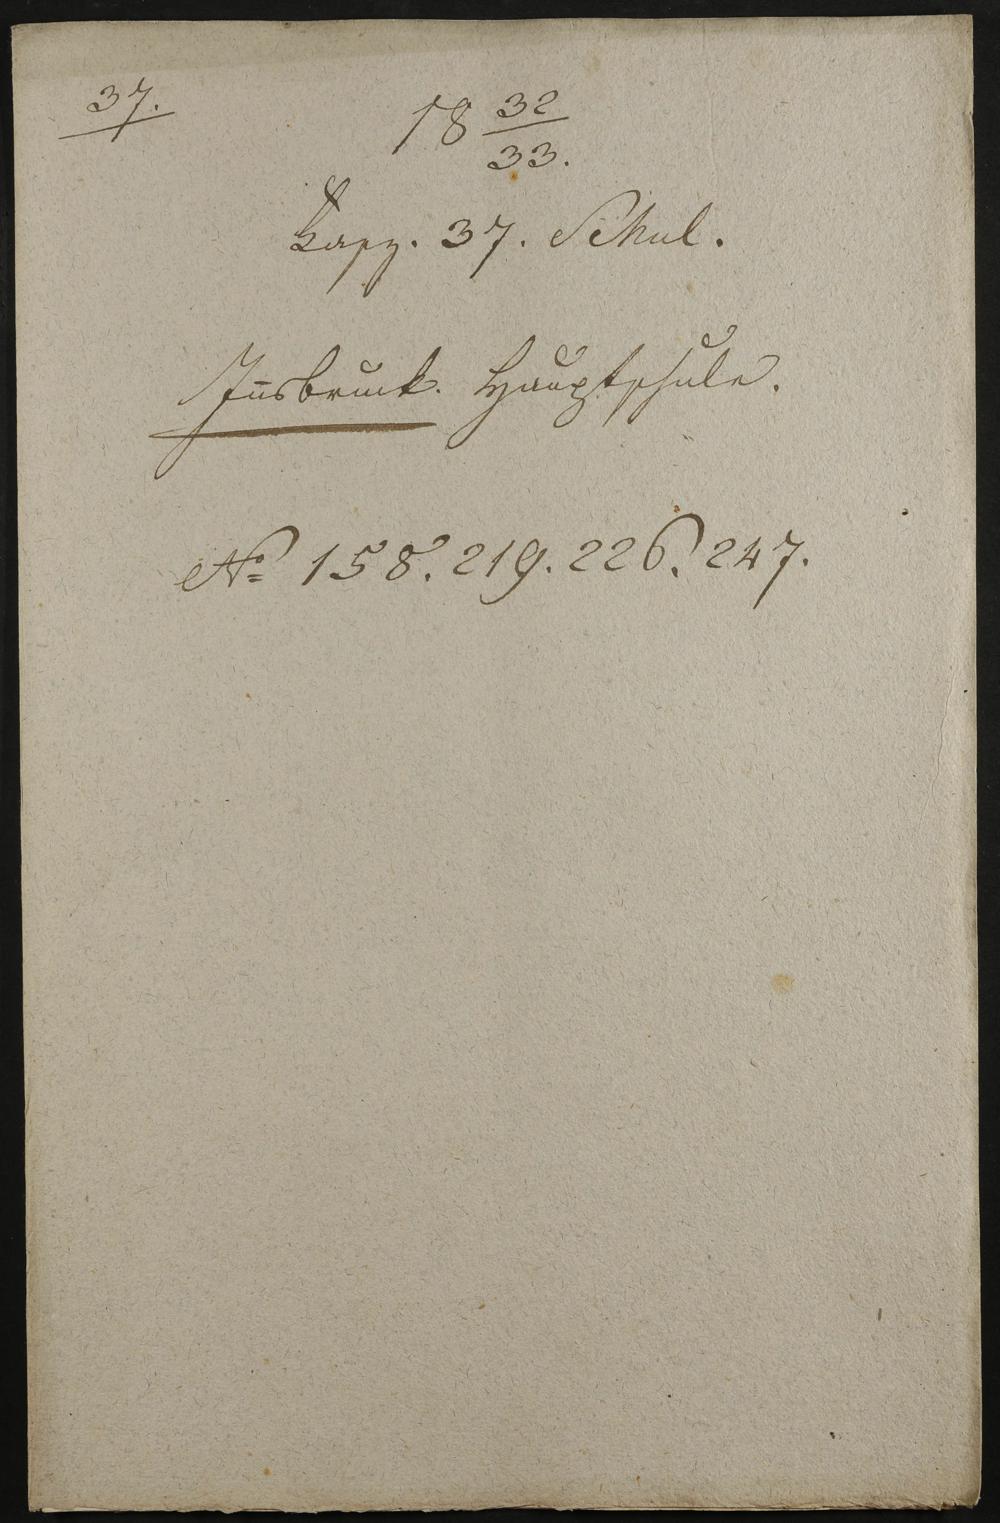 37.
18 32/33.
Fasz. 37. Schul.
Insbruck. Hauptschule.
No 158. 219. 226. 247.